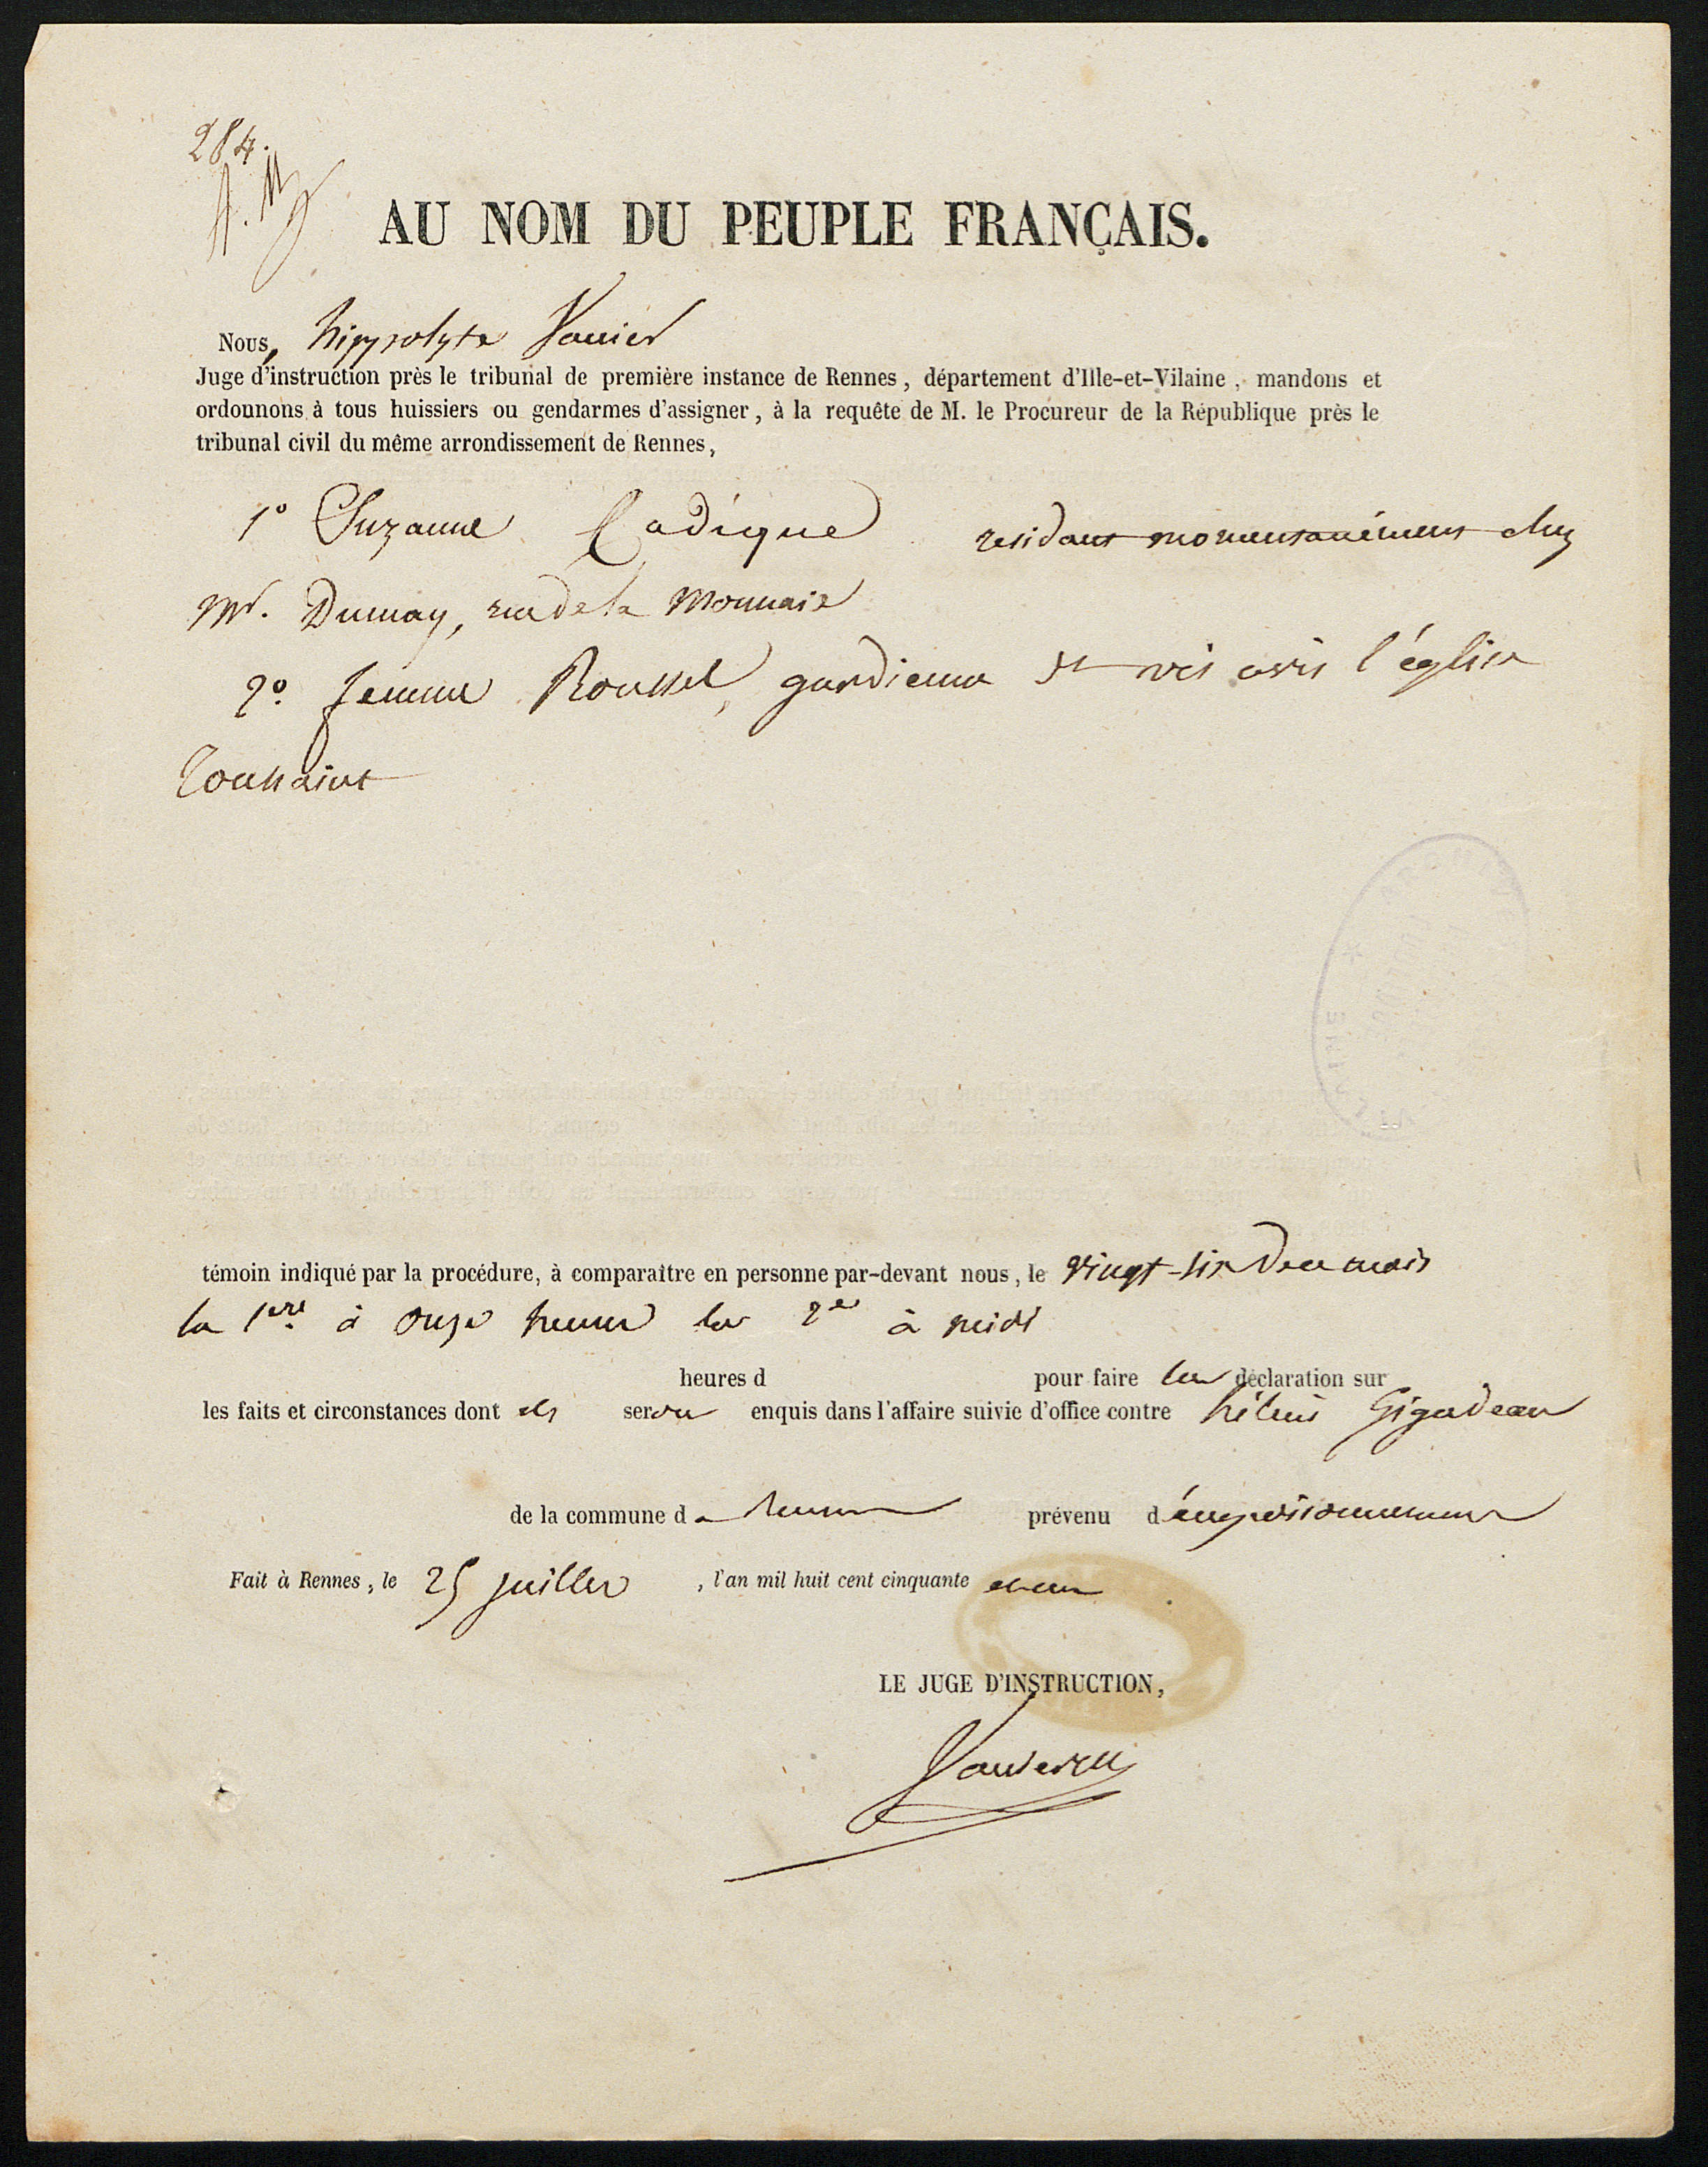 284.
AU NOM DU PEUPLE FRANÇAIS.
Nous, hippolyte Vannier
Juge d'instruction près le tribunal de première instance de Rennes, département d'Ille-et-Vilaine, mandons et
ordonnons à tous huissiers ou gendarmes d'assigner, à la requête de M. le Procureur de la République près le
tribunal civil du même arrondissement de Rennes,
1° Suzanne Cadique residant momentanément chez
Mr. Dumay, rue de la Monnaie
2° femme Roussel, gardienne vis avis l'église
Toussaint
témoin indiqué par la procédure, à comparaître en personne par-devant nous, le vingt-six du mois
la 1ere à onze heures la 2e à midi
heures d pour faire leur déclaration sur
les faits et circonstances dont els seront enquis dans l'affaire suivie d'office contre hélène Gigadeau
de la commune de Rennes prévenu d'empoisonnement
Fait à Rennes, le 25 juillet, l'an mil huit cent cinquante et un
LE JUGE D'INSTRUCTION,